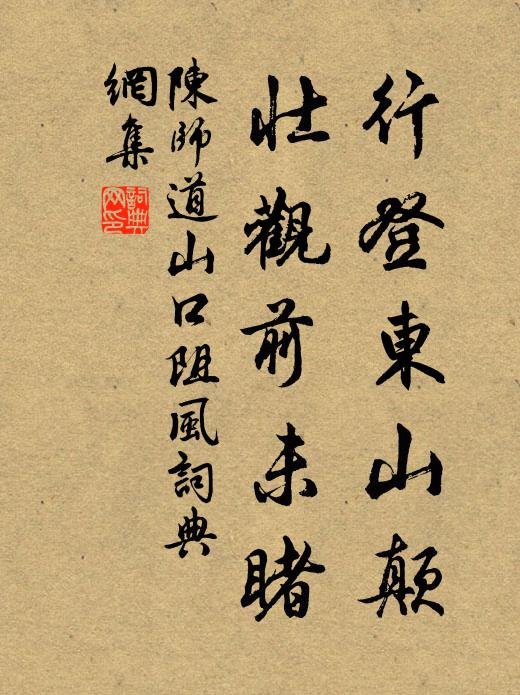 行登東山顛
壯觀前未睹
陳師道山口阻風詞典
網集
詞典
網印